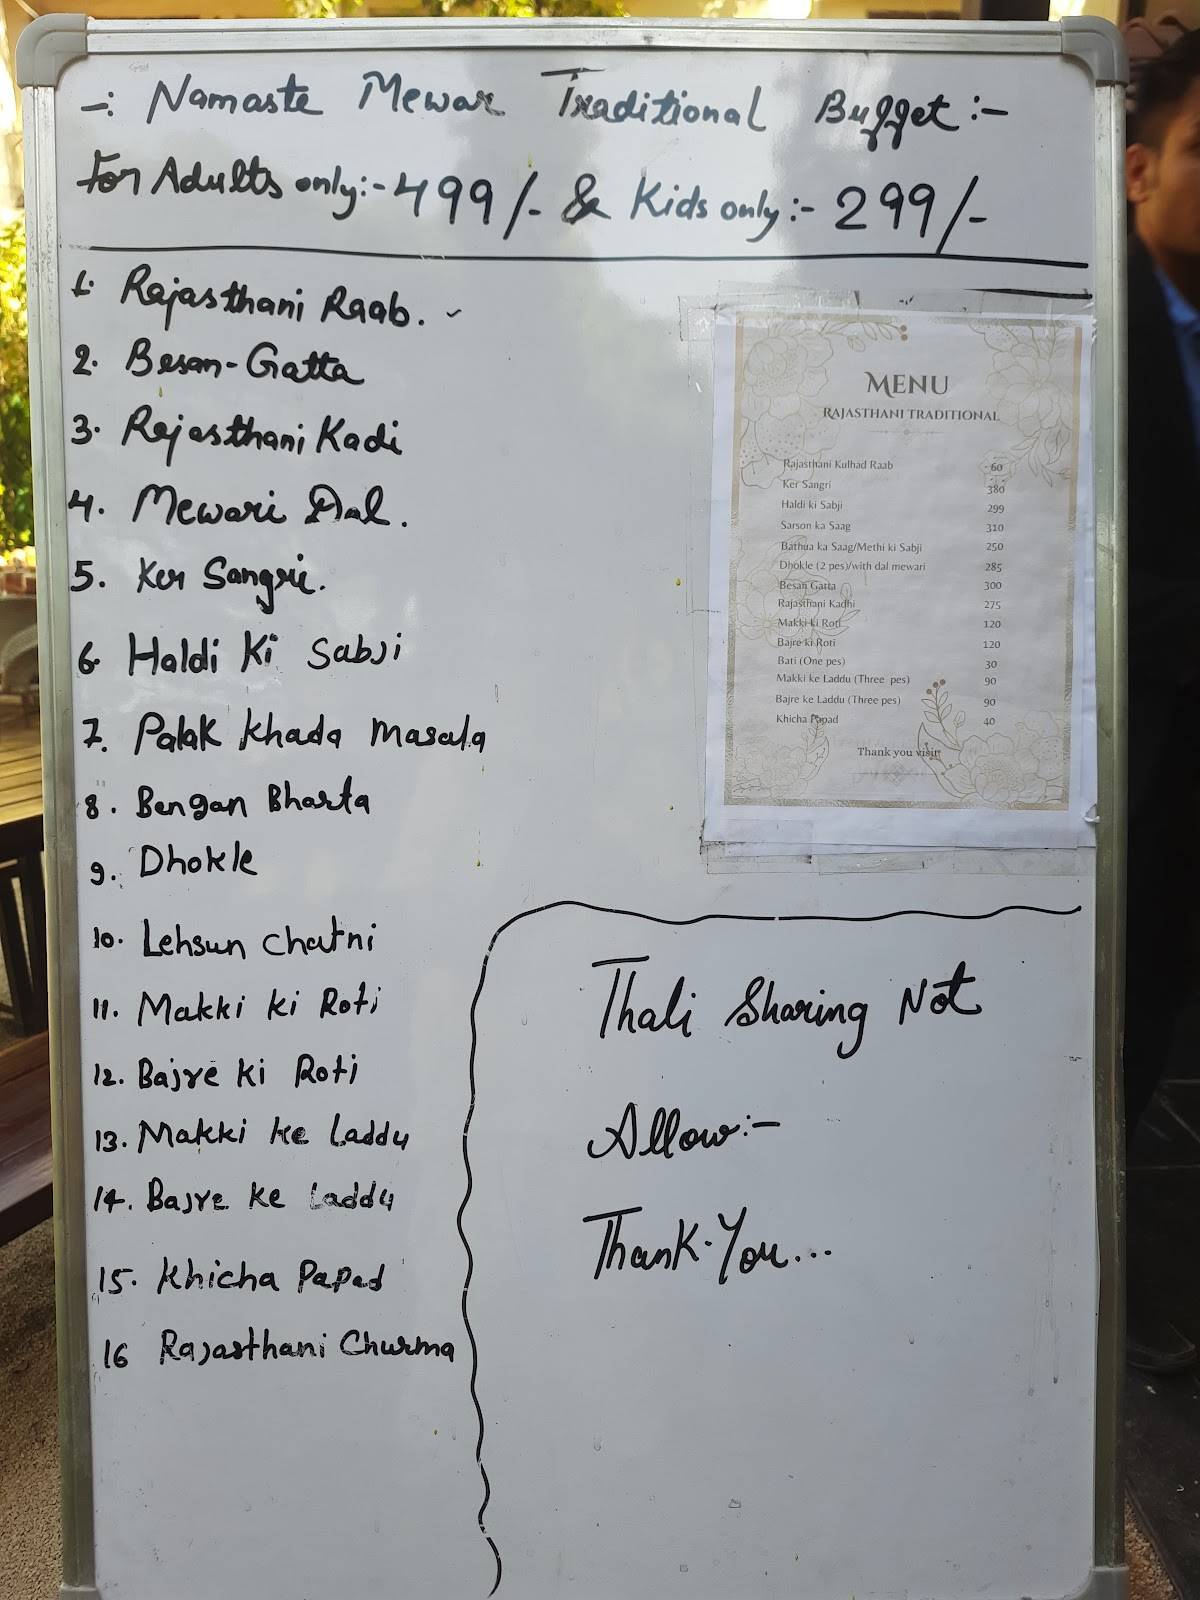 -: Namaste Mewar Traditional Buffet :-
For Adults only:- 499/- & Kids only:- 299/-
1. Rajasthani Raab.
2. Besan-Gatta
3. Rajasthani Kadi
4. Mewari Dal.
5. Ker Sangri.
6. Haldi Ki Sabji
7. Palak Khada Masala
8. Bengan Bharta
9. Dhokle
10. Lehsun Chatni
11. Makki ki Roti
12. Bajre ki Roti
13. Makki ke Laddu
14. Bajre ke Laddu
15. Khicha Papad
16 Rajasthani Churma
MENU
RAJASTHANI TRADITIONAL
Rajasthani Kulhad Raab 60
Ker Sangri 380
Haldi ki Sabji 299
Sarson ka Saag 310
Bathua ka Saag/Methi ki Sabji 250
Dhokle (2 pes)/with dal mewari 285
Besan Gatta 300
Rajasthani Kadhi 275
Makki ki Roti 120
Bajre ki Roti 120
Bati (One pes) 30
Makki ke Laddu (Three pes) 90
Bajre ke Laddu (Three pes) 90
Khicha Papad 40
Thank you visit
Thali Sharing Not
Allow:-
Thank. You...